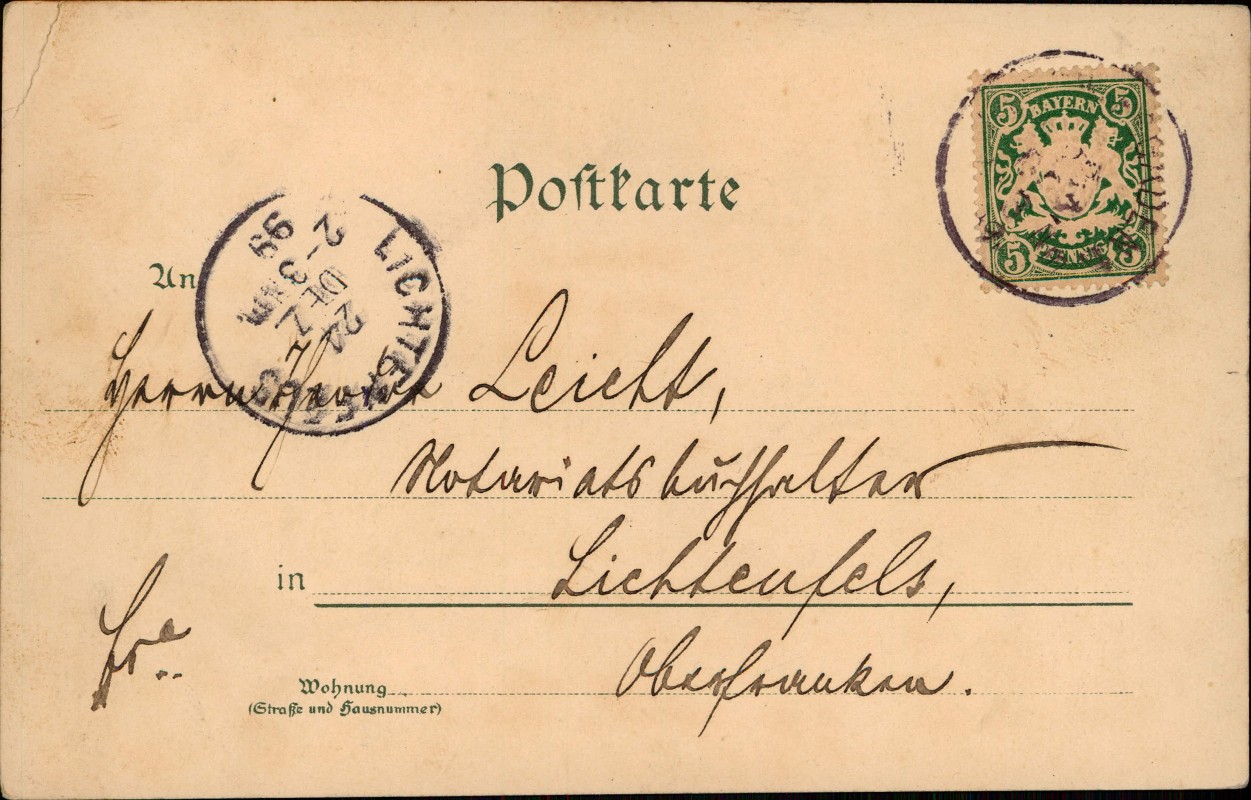 BAYERN
5 5
5 5
PFENNIG
Postkarte
LICHTENFELS
24 DEZ
2-3 Nm
99
An
Herrn Herrn Leicht,
Notariatsbuchhalter
in Lichtenfels,
fre..
Wohnung Oberfranken.
(Straße und Hausnummer)